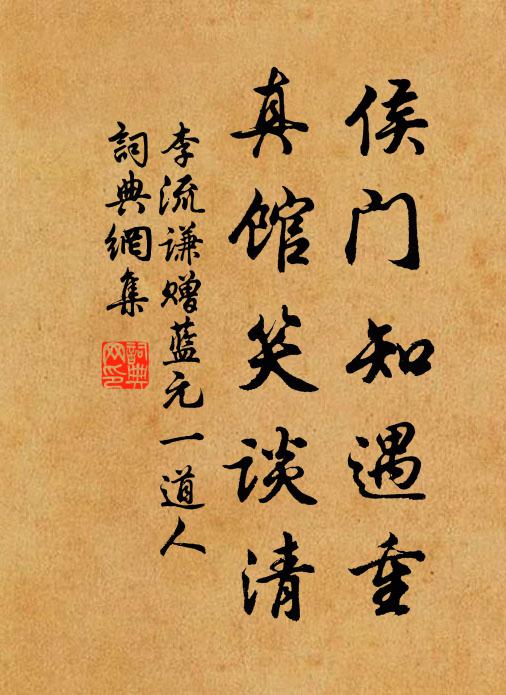 侯门知遇重
真馆笑谈清
李流谦赠蓝元一道人
詞典網集
詞典網印